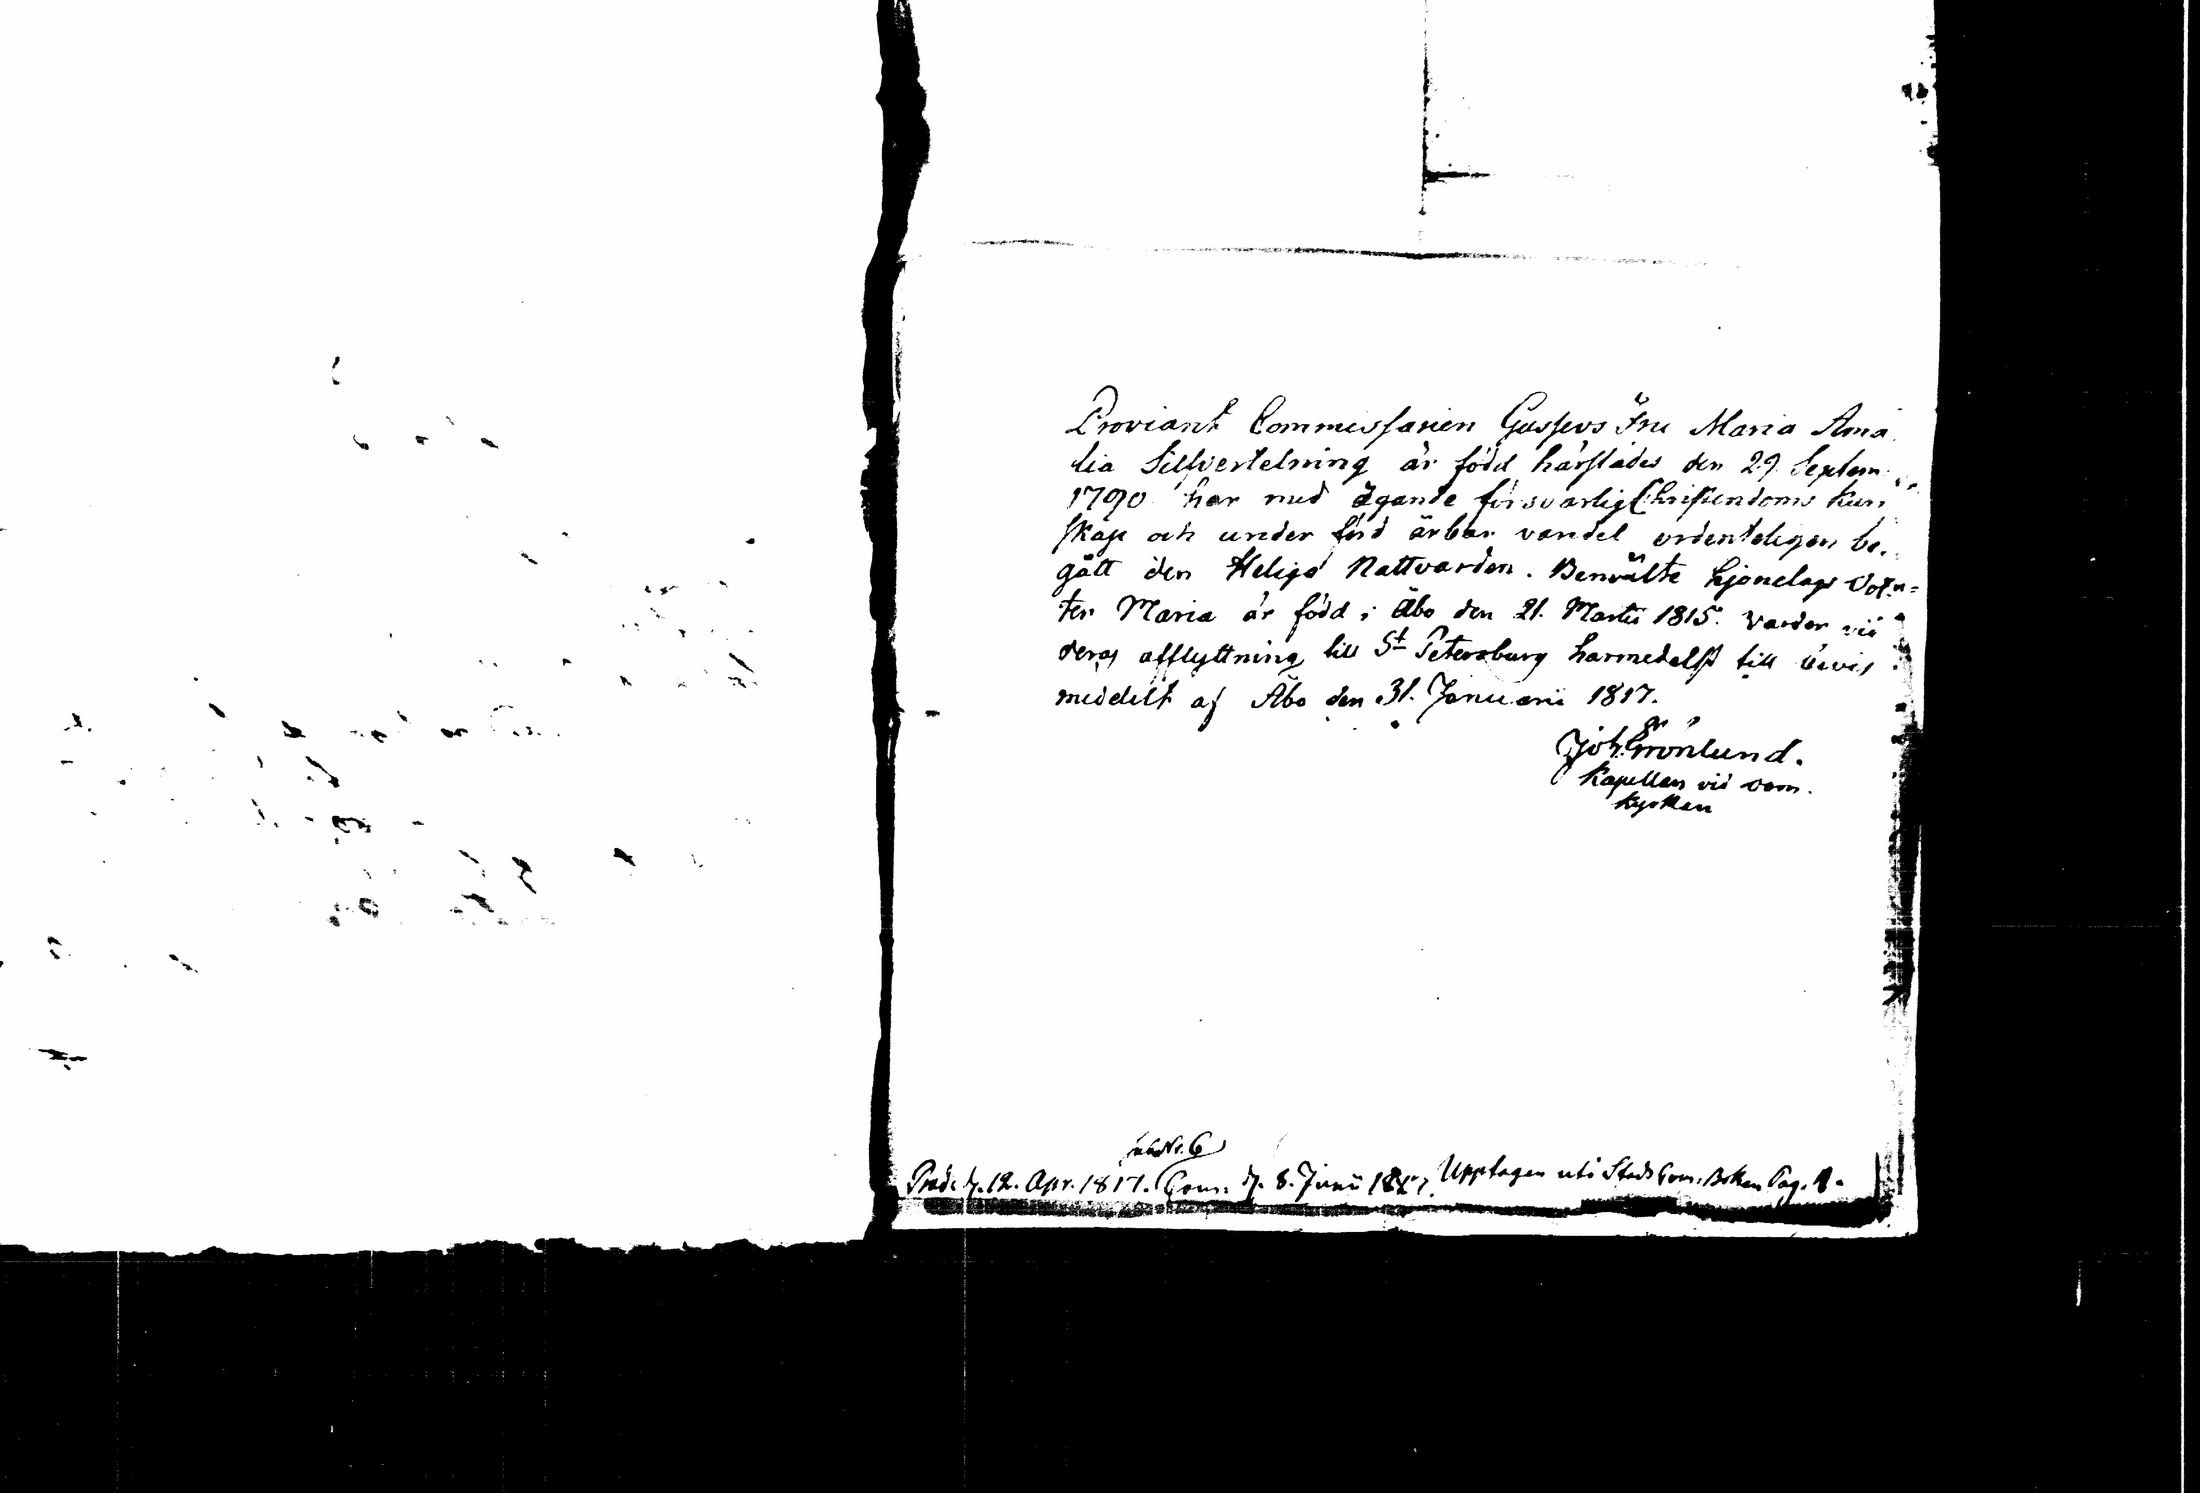 Proviant Commissarien Gussevs Fru Maria Ama
lia Silfvertelning är född härstädes den 29 Septem
1790 har med ägande försvarlig Christendoms kun
skap och under förd ärbar vandel ordenteligen be-
gått den Heliga Nattvarden. Benvälte hjonelags Dot=
ter Maria är född i Åbo den 21. Martii 1815. varder vid
deras afflyttning till St Petersburg harmedelst till bevis
meddelt af Åbo den 31. Januarii 1817.
Joh. Grönlund.
Kapellan vid Dom.
kyrkan
sub Nr. 6
Prod. d. 12. Apr. 1817. Com. d. 8. Junii Upptagen uti Stads Com. Boken Pag.